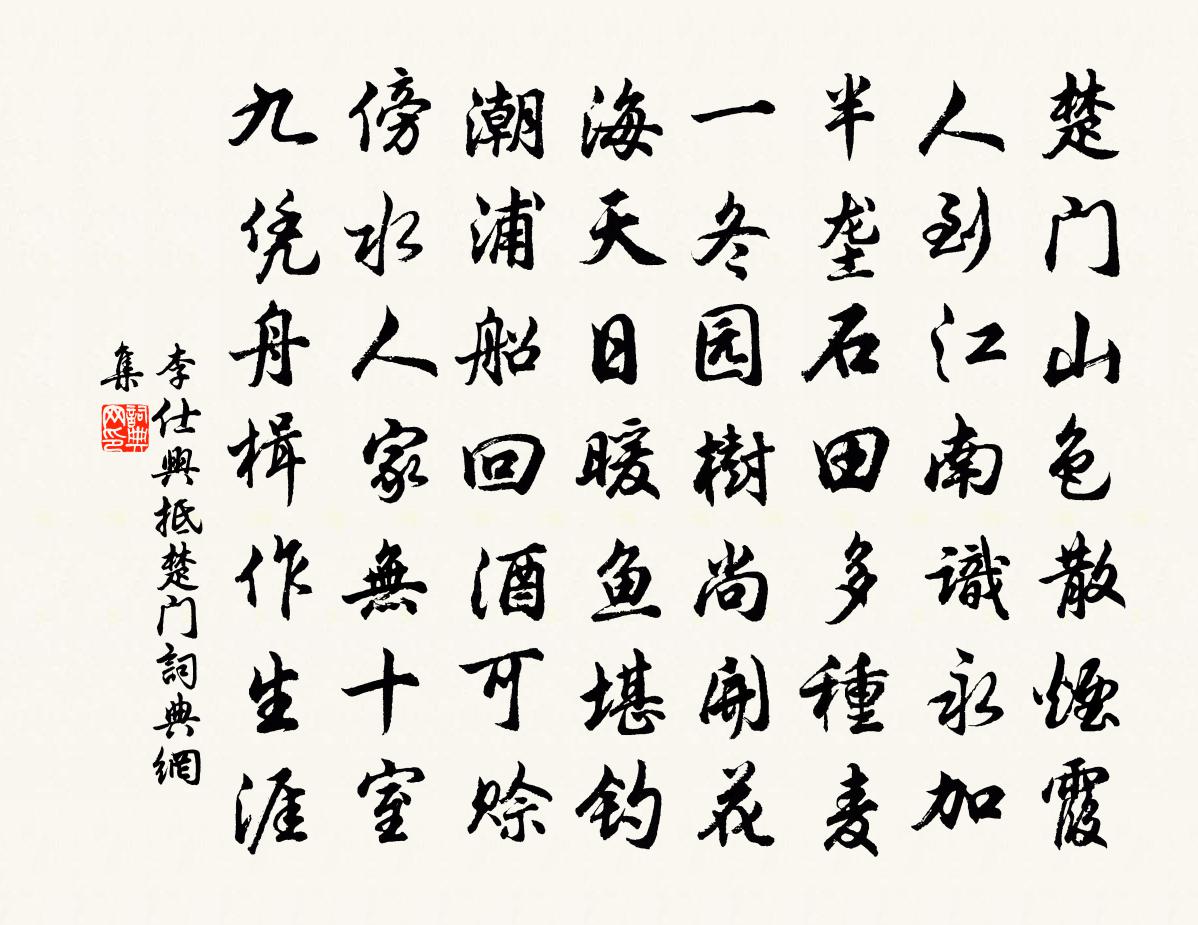 楚门山色散煙霞
人到江南識永加
半垄石田多種麦
一冬园樹尚開花
海天日暖鱼堪钓
潮浦船回酒可赊
傍水人家無十室
九凭舟楫作生涯
李仕興抵楚门詞典網
集
詞典网印